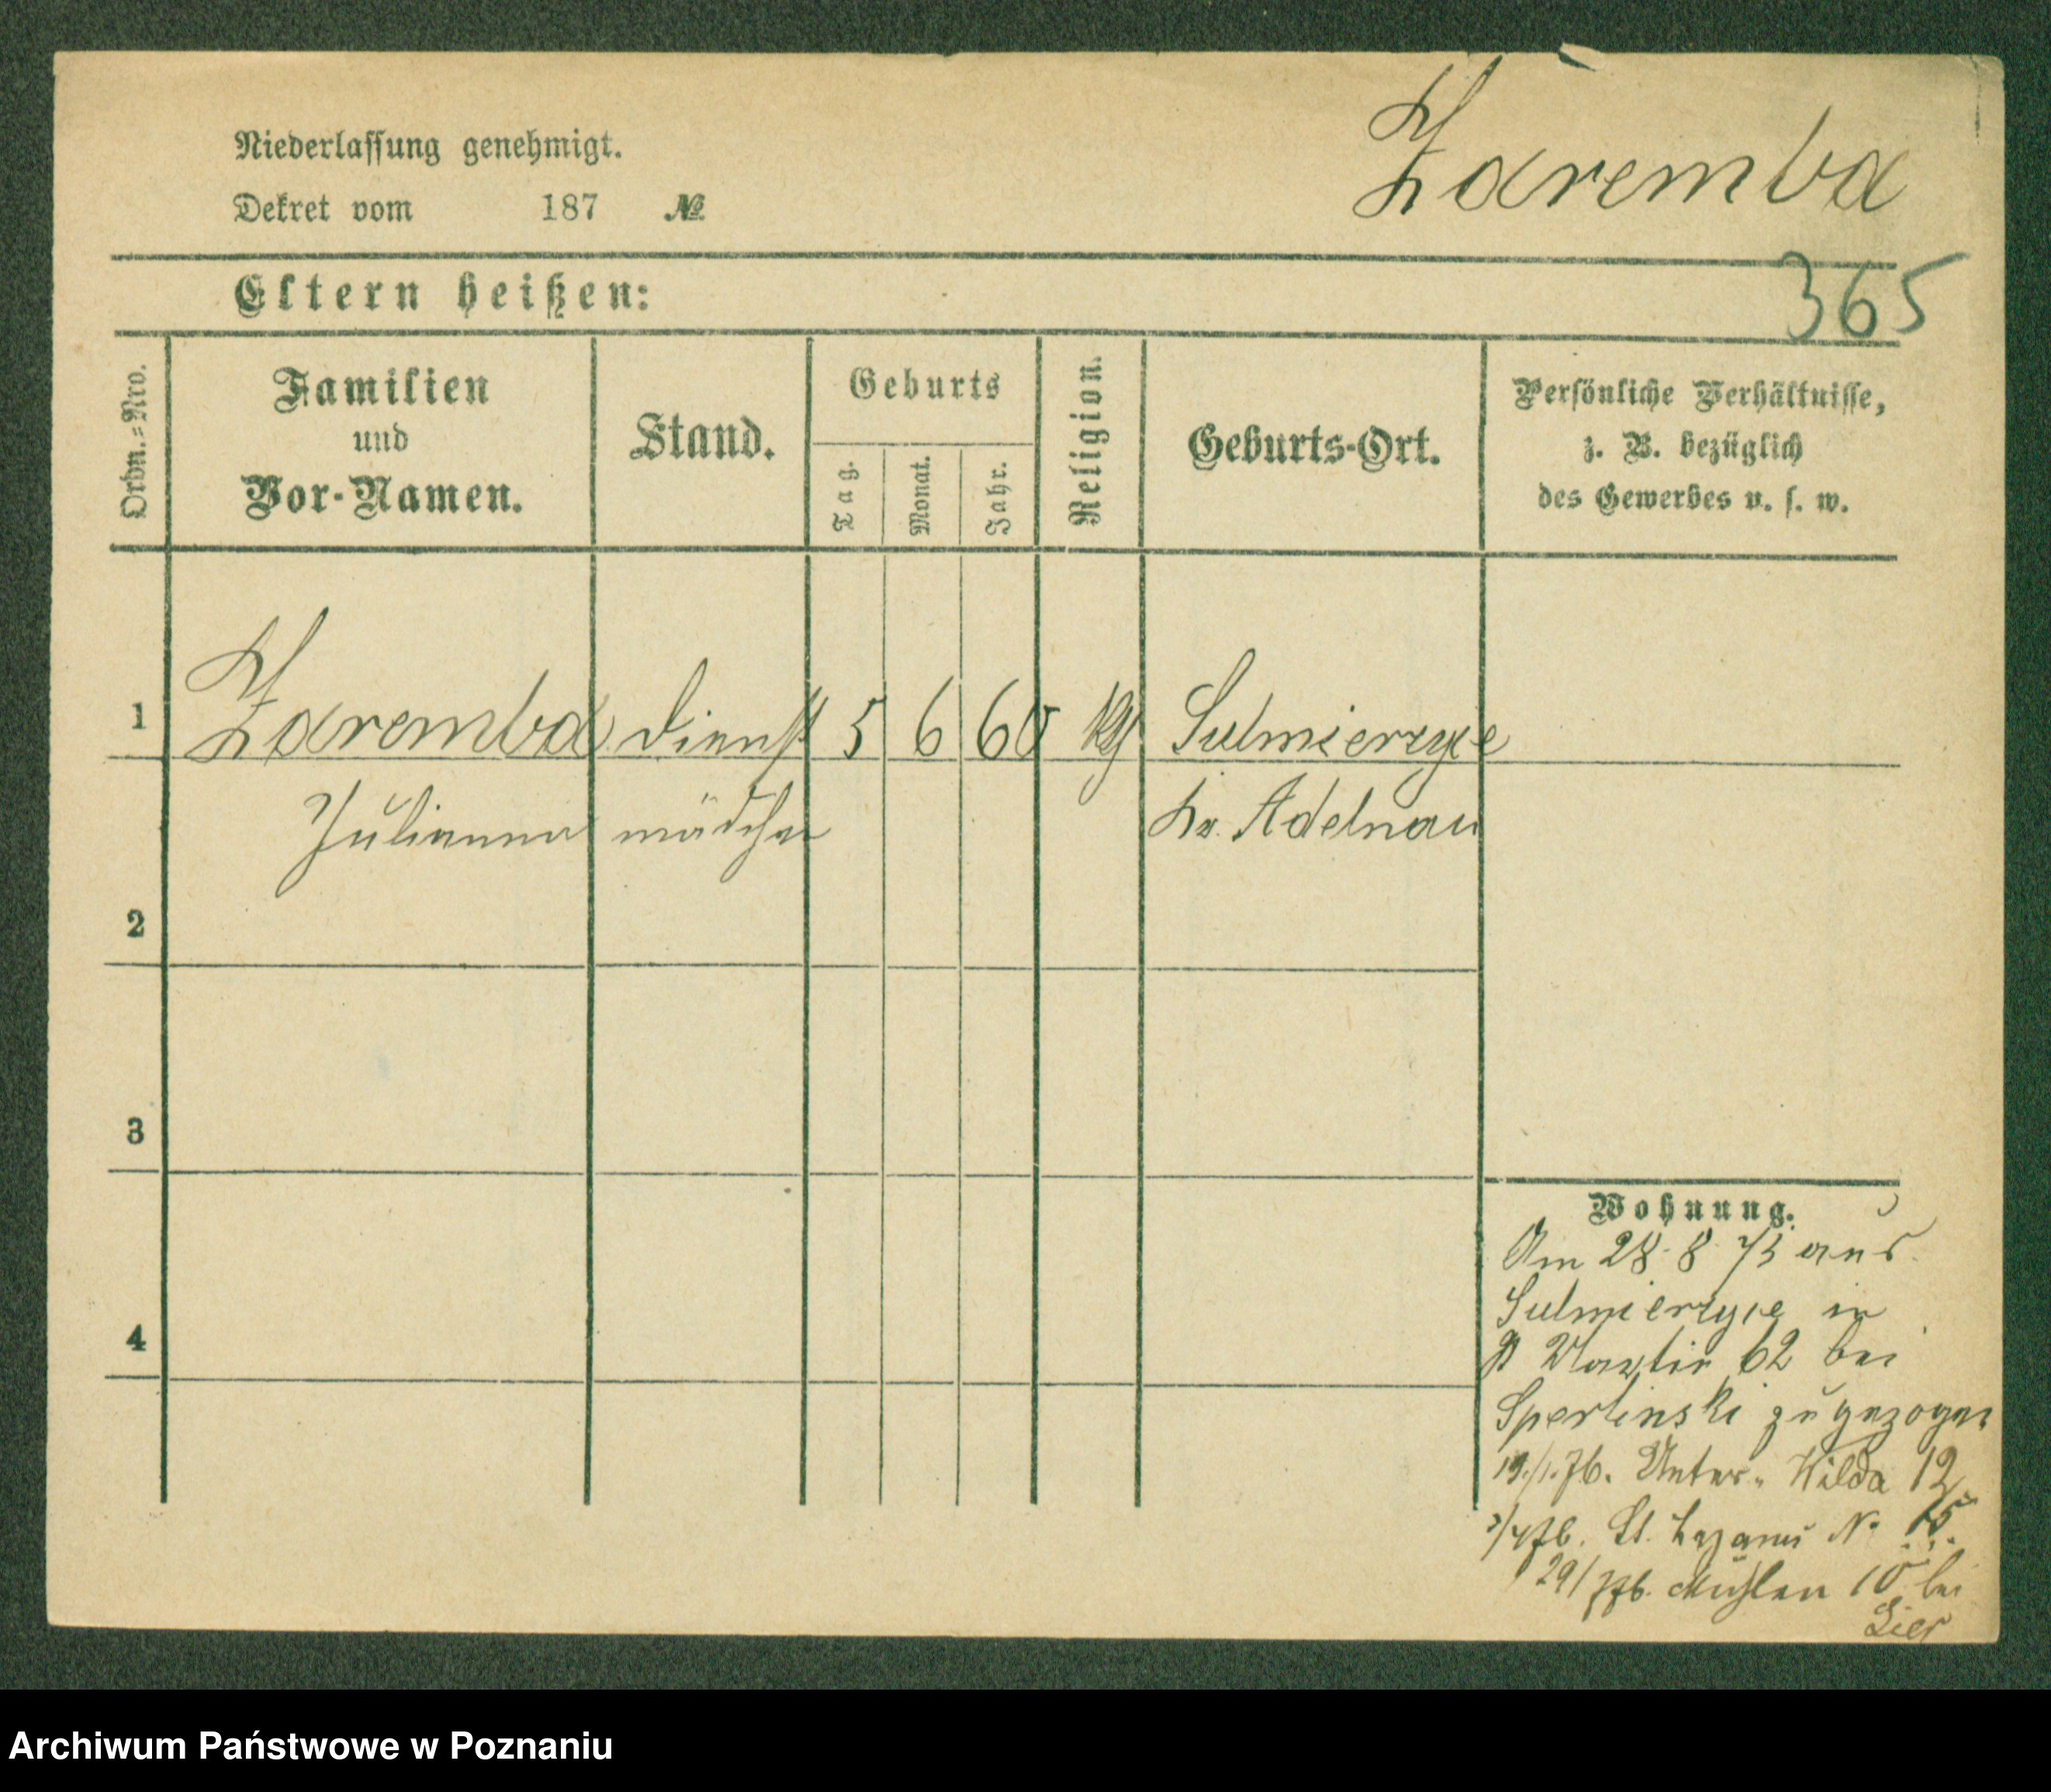 Niederlassung genehmigt.
Dekret vom 187 №
Zaremba
365
Eltern heißen:
Ordn.=Nro.
Familien
und
Vor-Namen.
Stand.
Geburts
Tag.
Monat.
Jahr.
Religion.
Geburts-Ort.
Persönliche Verhältnisse,
z. B. bezüglich
des Gewerbes u. s. w.
1 Zaremba Dienst 5 6 60 Sulmierzyce
Julianna mädchen Kr. Adelnau
2
3
4
Wohnung.
Am 28. 8. 75 aus
Sulmierzyce in
62 bei
zugezogen
19./1.76. Unter- Wilda 12
St. Lazarus No 15.
29/ Mühlen 10 bei
Archiwum Państwowe w Poznaniu